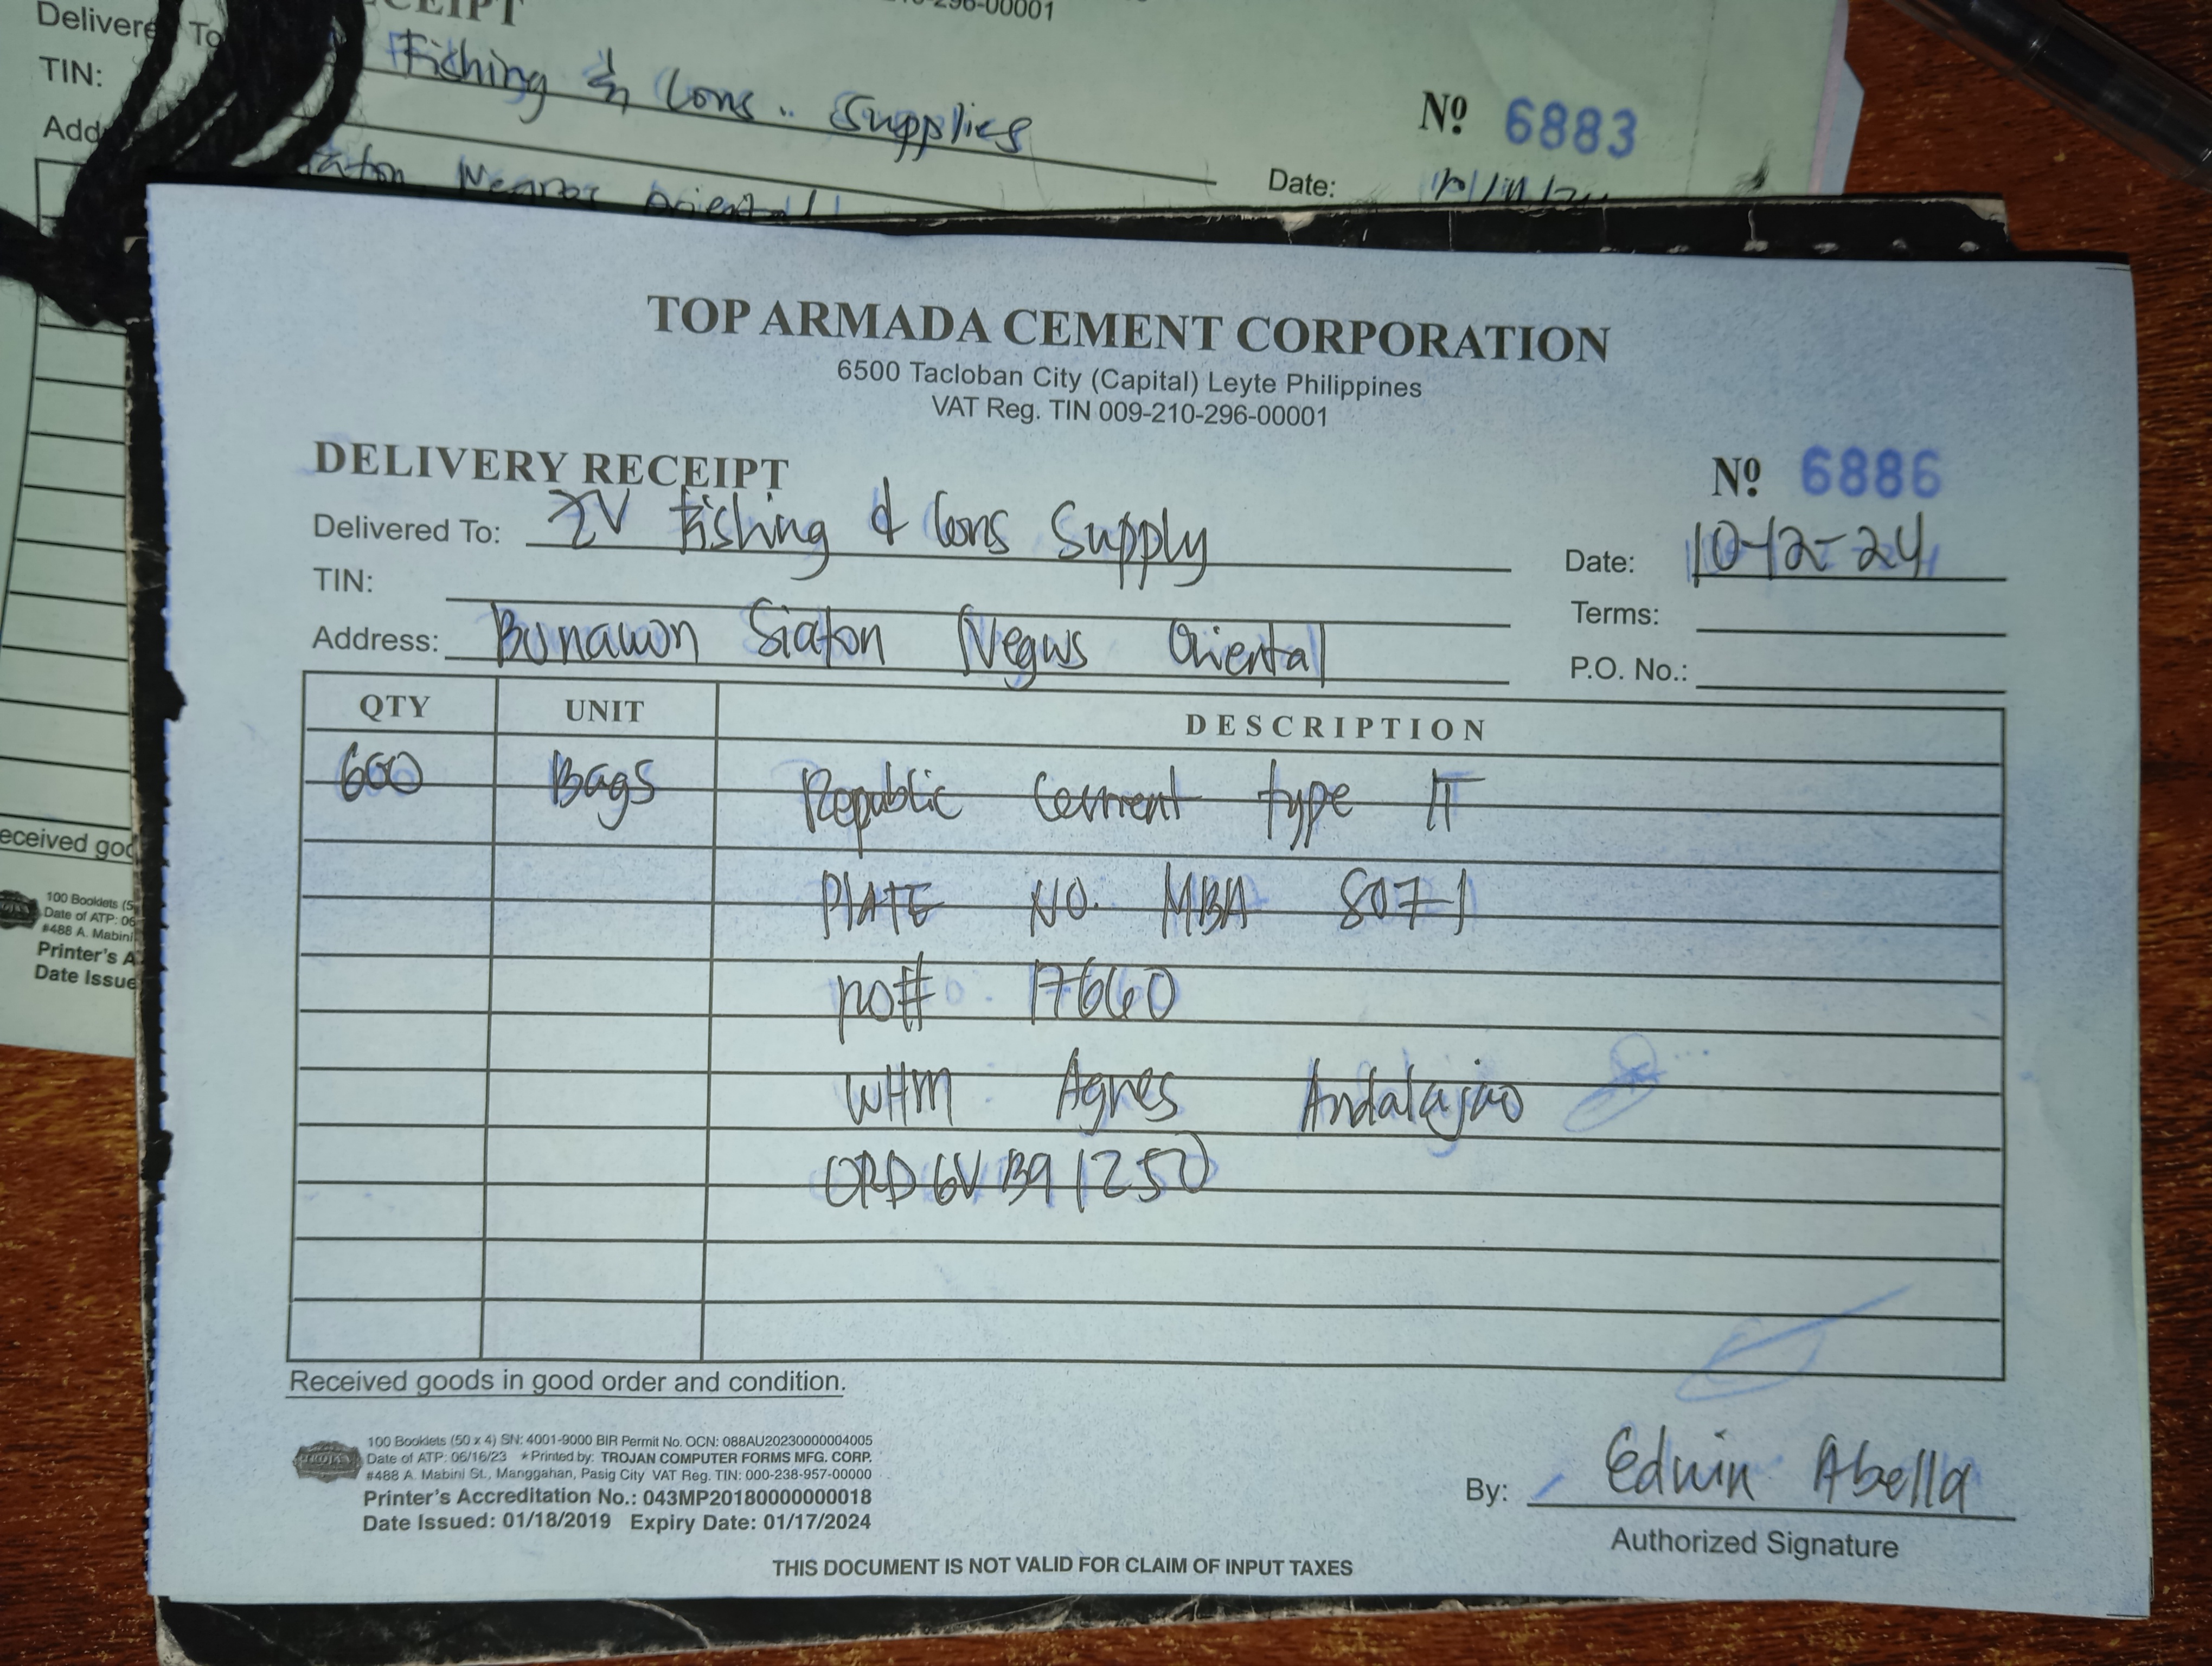 Delivered To
TIN: Fishing & Cons.. Supplies
Nº 6883
Negros Oriental
Date:
TOP ARMADA CEMENT CORPORATION
6500 Tacloban City (Capital) Leyte Philippines
VAT Reg. TIN 009-210-296-00001
DELIVERY RECEIPT
Nº 6886
Delivered To: Fishing & Cons Supply
Date: 10-12-24
TIN:
Terms:
Address: Bonawon Siaton Negros Oriental
P.O. No.:
QTY UNIT DESCRIPTION
600 Bags Republic Cement type IT
PLATE NO. MBA 8071
po# 17660
WHM Agnes Andalajao
ORD6VB91250
Received goods in good order and condition.
100 Booklets (50 x 4) SN: 4001-9000 BIR Permit No. OCN: 088AU20230000004005
Date of ATP: 06/16/23 ★Printed by: TROJAN COMPUTER FORMS MFG. CORP.
#488 A. Mabini St., Manggahan, Pasig City VAT Reg. TIN: 000-238-957-00000
Printer's Accreditation No.: 043MP20180000000018
Date Issued: 01/18/2019 Expiry Date: 01/17/2024
By: Edwin Abella
Authorized Signature
THIS DOCUMENT IS NOT VALID FOR CLAIM OF INPUT TAXES